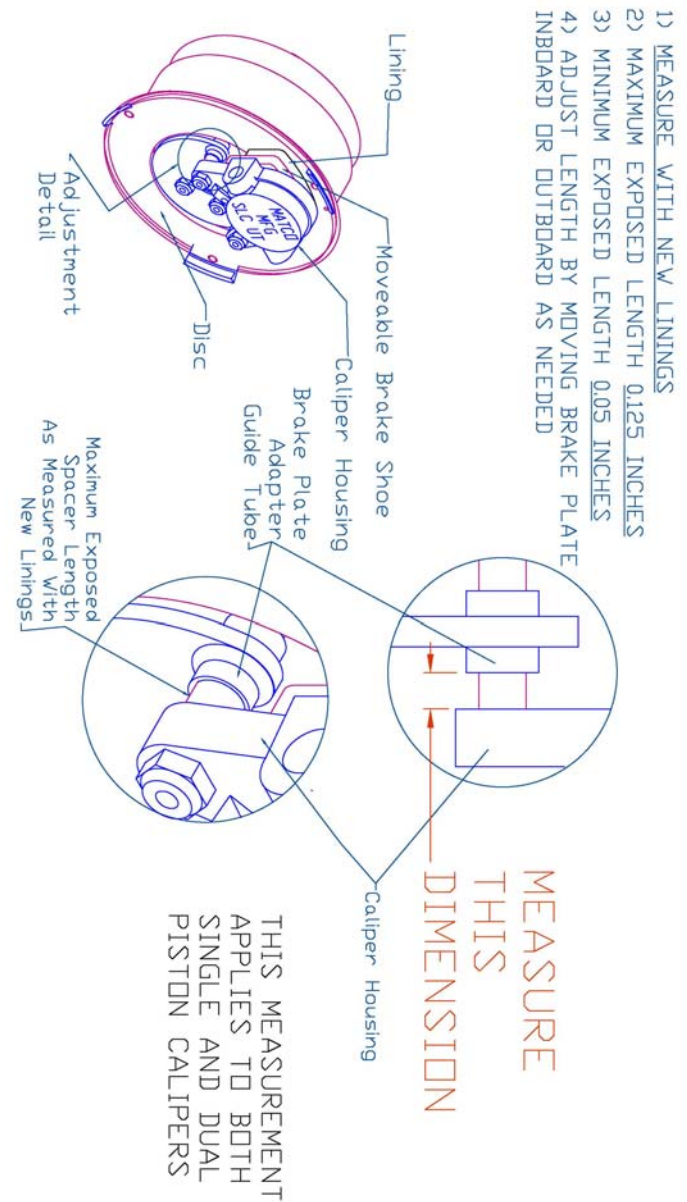 1) MEASURE WITH NEW LININGS
2) MAXIMUM EXPOSED LENGTH 0.125 INCHES
3) MINIMUM EXPOSED LENGTH 0.05 INCHES
4) ADJUST LENGTH BY MOVING BRAKE PLATE
INBOARD OR OUTBOARD AS NEEDED
Lining
Moveable Brake Shoe
Caliper Housing
MATCO
MFG
SLC UT
Disc
Adjustment
Detail
Brake Plate
Adapter
Guide Tube
Maximum Exposed
Spacer Length
As Measured With
New Linings
MEASURE
THIS
DIMENSION
Caliper Housing
THIS MEASUREMENT
APPLIES TO BOTH
SINGLE AND DUAL
PISTON CALIPERS